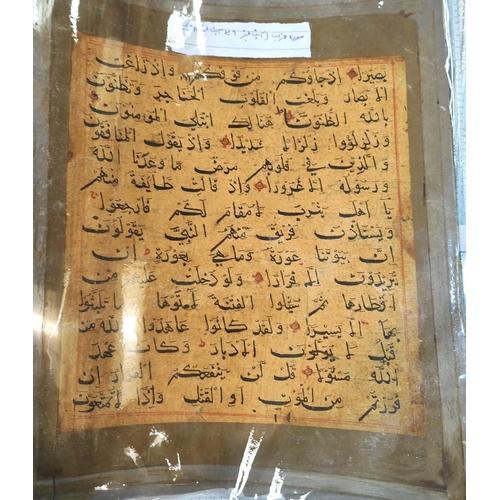 بصيرا اذ جاوكم من فوقكم واذ زاغت
الابصار وبلغت القلوب الحناجر وتظنون
بالله الظنون هنالك ابتلي المومنون
وزلزلوا زلزالا شديدا واذ يقول المنافقون
والذين في قلوبهم مرض ما وعدنا الله
ورسوله الا غرورا واذ قالت طايفة منهم
يا اهل يثرب لا مقام لكم فارجعوا
ويستاذن فريق منهم النبي يقولون
ان بيوتنا عورة وما هي بعورة ان
يريدون الا فرارا ولو دخلت عليهم من
اقطارها ثم سيلوا الفتنة لاتوها وما تلبثوا
بها الا يسيرا ولقد كانوا عاهدوا الله من
قبل لا يولون الادبار وكان عهد
الله مسئولا قل لن ينفعكم الفرار ان
فررتم من الموت او القتل واذا لا تمتعون